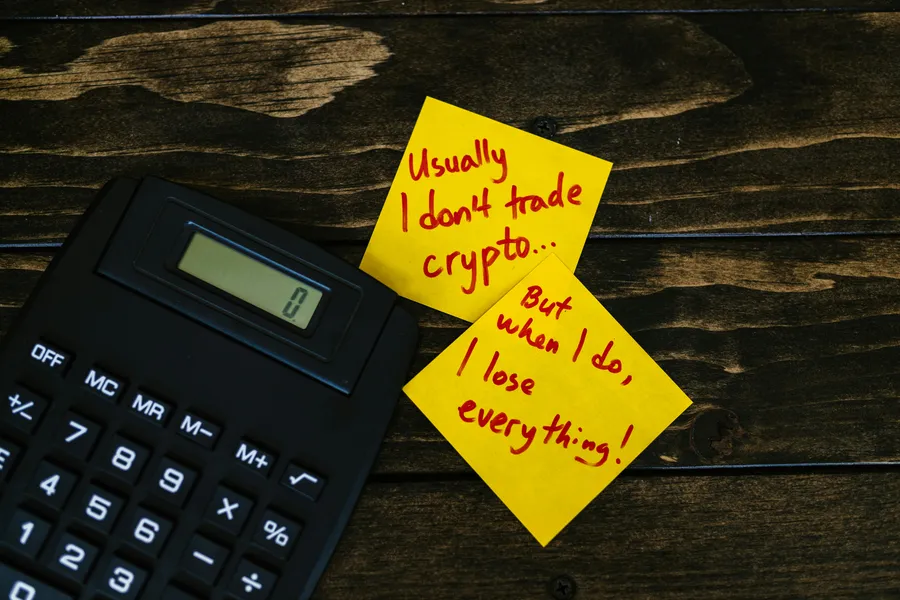 Usually
I don't trade
crypto...
But
when I do,
I lose
everything!
0.
OFF
MC
MR
M−
M+
√
+/−
7
8
9
×
%
4
5
6
−
÷
1
2
3
0